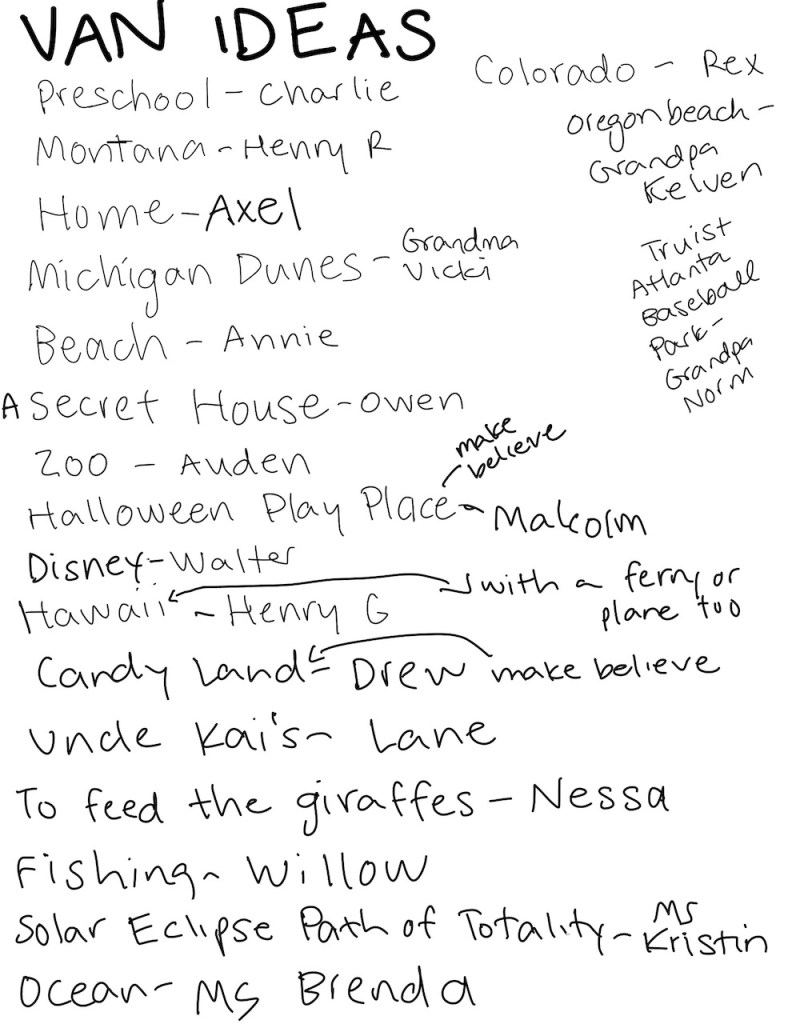 VAN IDEAS
Preschool - Charlie
Montana - Henry R
Home - Axel
Michigan Dunes - Grandma
Vicki
Beach - Annie
A Secret House - owen
Zoo - Auden
make
believe
Halloween Play Place - Malcolm
Disney - Walter
Hawaii - Henry G
with a ferry or
plane too
Candy Land - Drew make believe
Uncle Kai's - Lane
To feed the giraffes - Nessa
Fishing - Willow
Solar Eclipse Path of Totality - Ms
Kristin
Ocean - Ms Brenda
Colorado - Rex
oregon beach -
Grandpa
Kelven
Truist
Atlanta
Baseball
Park -
Grandpa
Norm